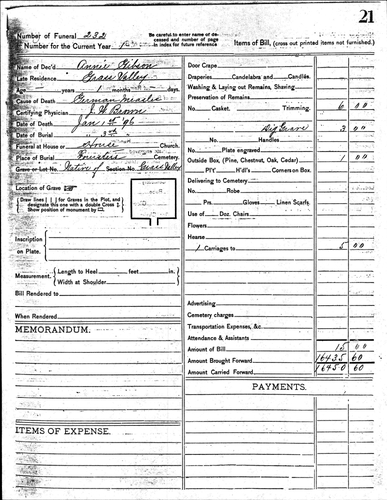 21
Number of Funeral 232
Number for the Current Year 1
Be careful to enter number of deceased and number of page in index for future reference
Items of Bill, (cross out printed items not furnished.)
Name of Dec'd Annie Gibson
Late Residence Grass Valley
Age years 1 months days.
Cause of Death German Measles
Certifying Physician
Date of Death Jan 1st 96
Date of Burial " 3rd "
Funeral at House or House Church.
Place of Burial Foresters Cemetery.
Grave or Lot No. Native of Section No. Grass Valley
Location of Grave
Draw lines for Graves in the Plot, and designate this one with a double Cross
Show position of monument by
Inscription on Plate.
Measurement. Length to Heel feet in.
Width at Shoulder
Bill Rendered to
When Rendered
MEMORANDUM.
ITEMS OF EXPENSE.
Door Crape
Draperies Candelabra and Candles.
Washing & Laying out Remains, Shaving
Preservation of Remains
No. Casket. Trimming. 6 00
Dig Grave 3 00
No. Handles
Plate engraved
Outside Box (Pine, Chestnut, Oak, Cedar) 1 00
Delivering to Cemetery
No. Robe
Prs. Gloves Linen Scarfs
Use of Doz. Chairs
Flowers
Hearse
1 Carriages to 5 00
Advertising
Cemetery charges
Transportation Expenses, &c.
Attendance & Assistants
Amount of Bill 15 00
Amount Brought Forward 16435 60
Amount Carried Forward 16450 60
PAYMENTS.